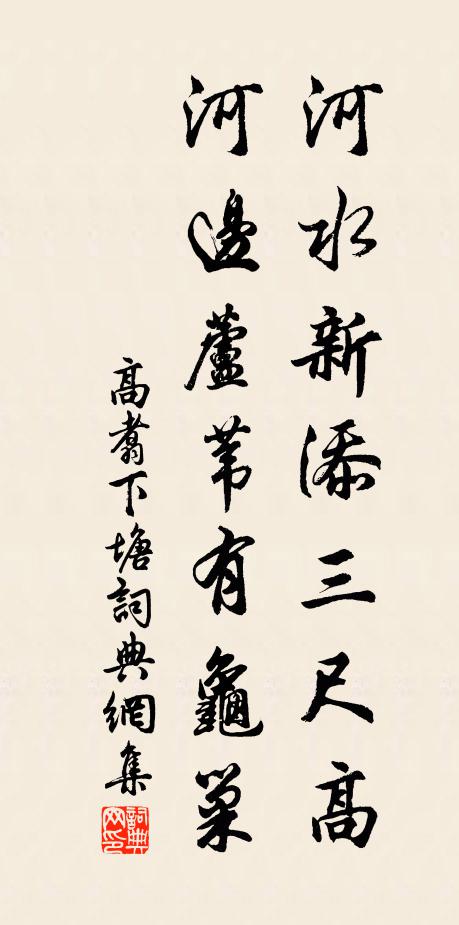 河水新添三尺高
河邊蘆葦有龜巢
高翥下塘詞典網集
詞典網印